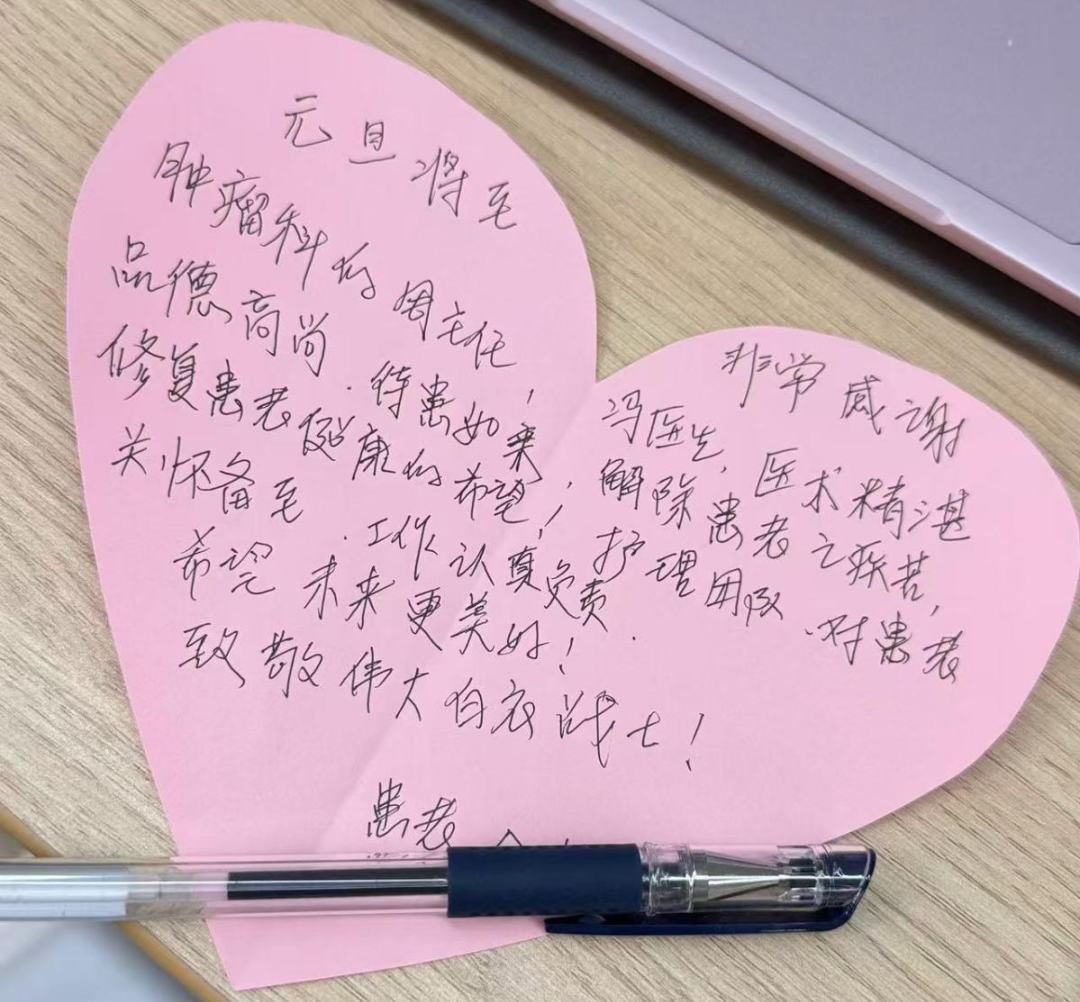 元旦将至 非常感谢
肿瘤科的周主任,冯医生,医术精湛
品德高尚.待患如亲,解除患者之疾苦,
修复患者健康的希望!护理团队.对患者
关怀备至.工作认真负责.
希望未来更美好!
致敬伟大白衣战士!
患者